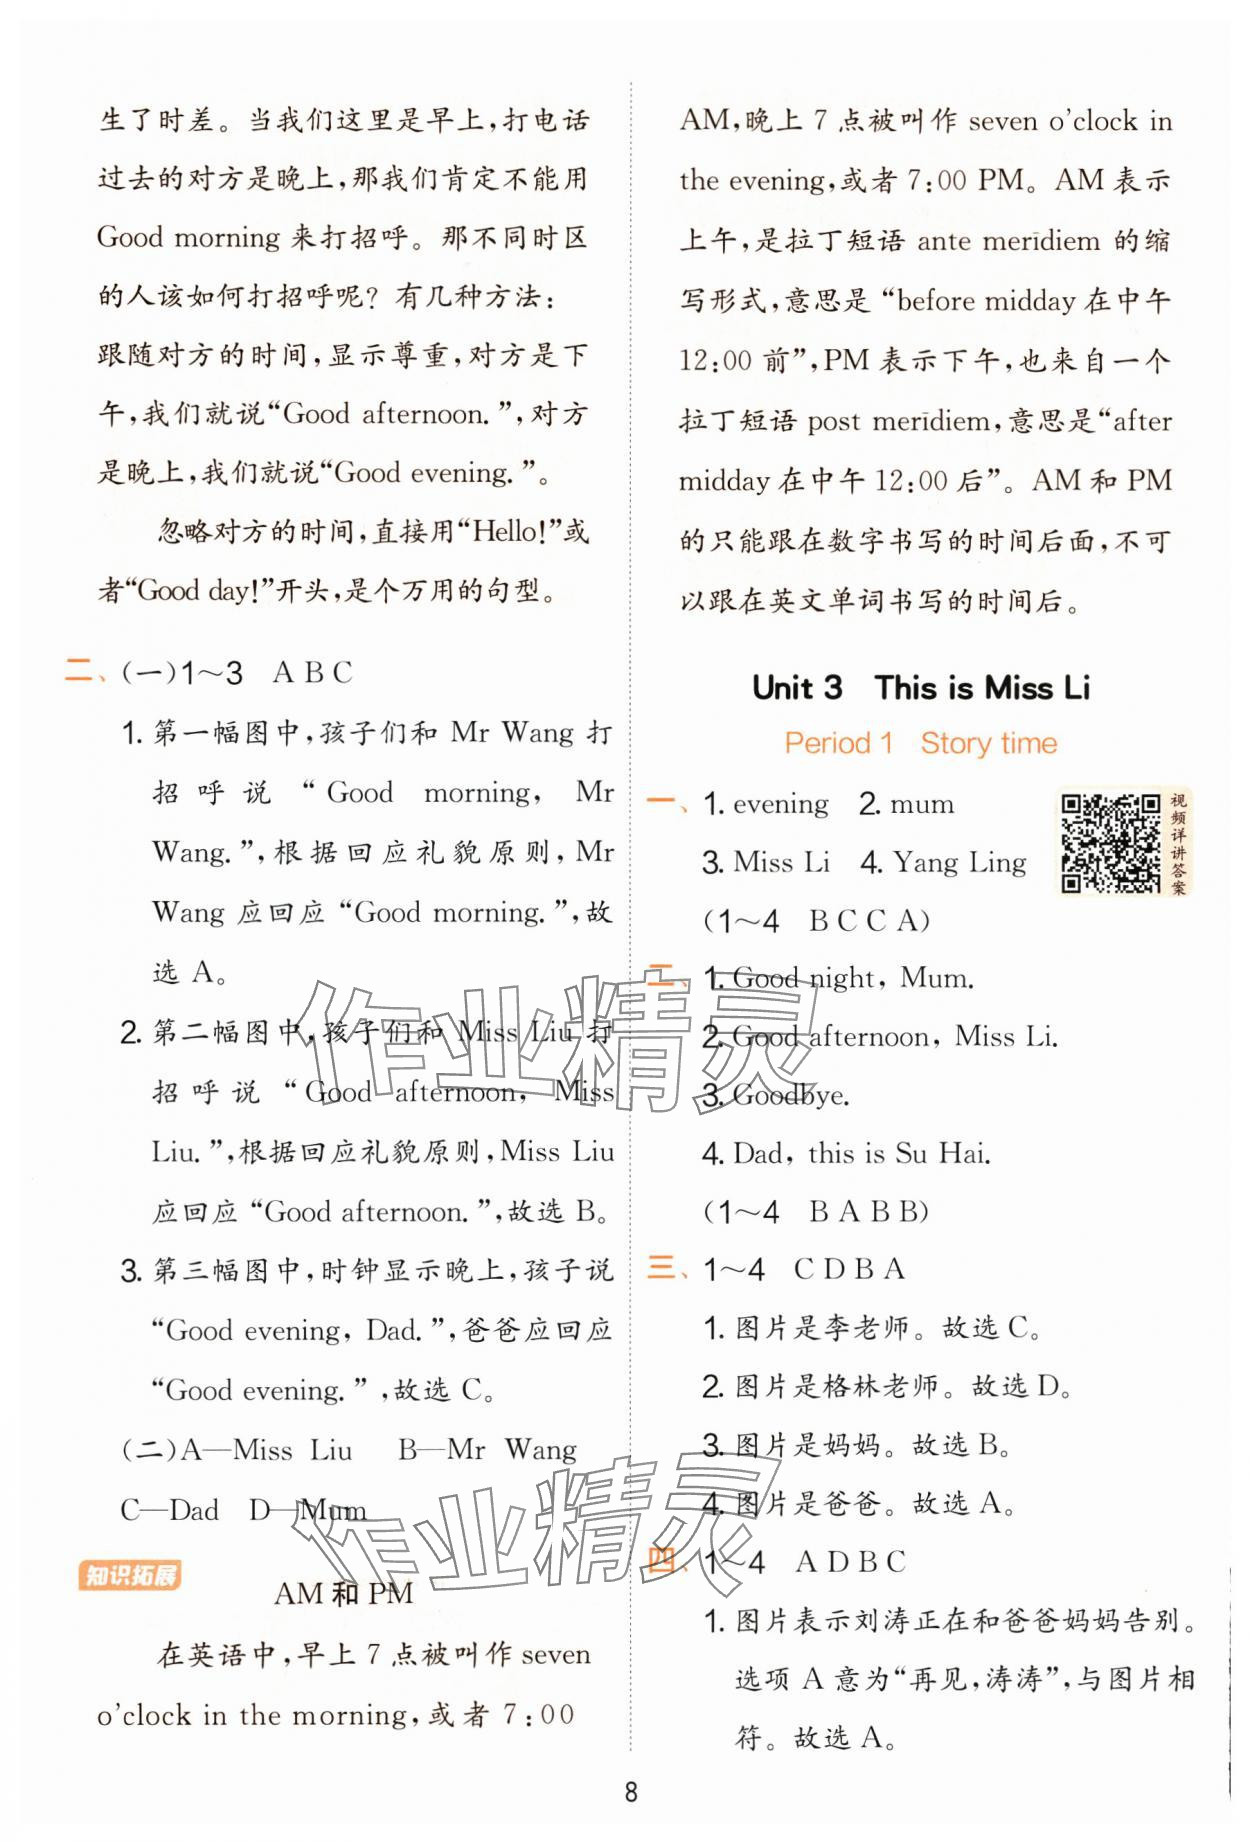 生了时差。当我们这里是早上,打电话
过去的对方是晚上,那我们肯定不能用
Good morning 来打招呼。那不同时区
的人该如何打招呼呢？有几种方法：
跟随对方的时间,显示尊重,对方是下
午,我们就说“Good afternoon.”,对方
是晚上,我们就说“Good evening.”。
忽略对方的时间,直接用“Hello!”或
者“Good day!”开头,是个万用的句型。
二、(一)1～3 A B C
1. 第一幅图中,孩子们和 Mr Wang 打
招呼说“Good morning, Mr
Wang.”,根据回应礼貌原则,Mr
Wang 应回应“Good morning.”,故
选 A。
2. 第二幅图中,孩子们和 Miss Liu 打
招呼说“Good afternoon, Miss
Liu.”,根据回应礼貌原则,Miss Liu
应回应“Good afternoon.”,故选 B。
3. 第三幅图中,时钟显示晚上,孩子说
“Good evening, Dad.”,爸爸应回应
“Good evening.”,故选 C。
(二)A—Miss Liu B—Mr Wang
C—Dad D—Mum
知识拓展
AM 和 PM
在英语中,早上 7 点被叫作 seven
o'clock in the morning,或者 7:00
AM,晚上 7 点被叫作 seven o'clock in
the evening,或者 7:00 PM。AM 表示
上午,是拉丁短语 ante meridiem 的缩
写形式,意思是“before midday 在中午
12:00 前”,PM 表示下午,也来自一个
拉丁短语 post merīdiem,意思是“after
midday 在中午 12:00 后”。AM 和 PM
的只能跟在数字书写的时间后面,不可
以跟在英文单词书写的时间后。
Unit 3 This is Miss Li
Period 1 Story time
一、1. evening 2. mum
3. Miss Li 4. Yang Ling
(1～4 B C C A)
视频详讲答案
二、1. Good night, Mum.
2. Good afternoon, Miss Li.
3. Goodbye.
4. Dad, this is Su Hai.
(1～4 B A B B)
三、1～4 C D B A
1. 图片是李老师。故选 C。
2. 图片是格林老师。故选 D。
3. 图片是妈妈。故选 B。
4. 图片是爸爸。故选 A。
四、1～4 A D B C
1. 图片表示刘涛正在和爸爸妈妈告别。
选项 A 意为“再见,涛涛”,与图片相
符。故选 A。
作业精灵
作业精灵
8